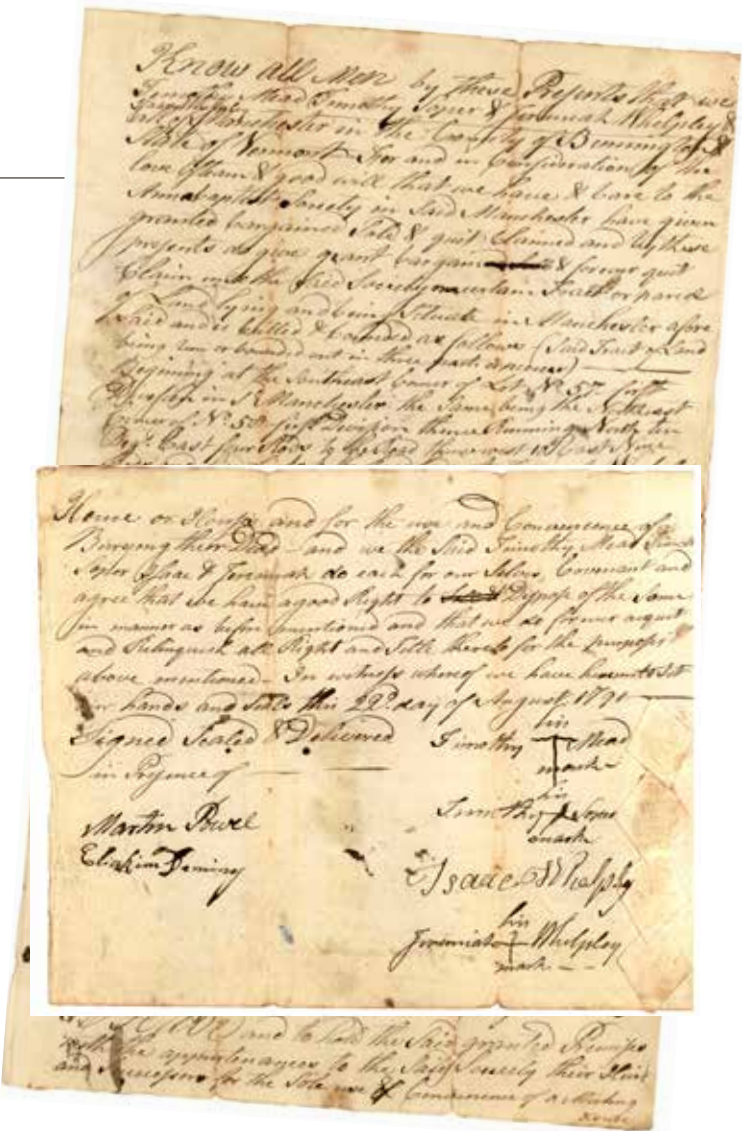 Know all Men by these Presents that we
Timothy Mead Timothy Soper & Jeremiah Whelpley &
all of Manchester in the County of Bennington &
State of Vermont For and in Consideration of the
love Esteam & good will that we have & bare to the
Annabaptist Society in Said Manchester have given
granted bargained Sold & quit Claimed and by these
presents do give grant bargain & forever quit
Claim unto the Said Society a certain Tract or parcel
of Land lying and being Situate in Manchester afore
Said and is butted & bounded as follows (Said Tract of Land
being run or bounded out in three
Begining at the Southeast Corner of Lot No 57 first
Division in Sd Manchester the Same being the Northeast
Corner of No 58 first Division thence Running North ten
Degs East four Rods to the Road thence west
House or Houses and for the use and Convenience of
Burying their Dead - and we the Said Timothy Mead
Soper Isaac & Jeremiah do each for our Selves Covenant and
agree that we have a good Right to Dispose of the Same
in manner as before mentioned and that we do forever acquit
and Relinquish all Right and Title thereto for the purposes
above mentioned - In witness whereof we have hereunto Set
our hands and Seals this 22d. day of August 1791
Signed Sealed & Delivered
in Presence of
Martin Powel
Eliakim Deming
his
Timothy Mead
mark
his
Timothy Soper
mark
Isaac Whelply
his
Jeremiah Whelpley
mark
and to hold the Said granted Premises
with the appurtenances to the Said Society their Heirs
and Successors for the Sole use & Convenience of a Meeting
House